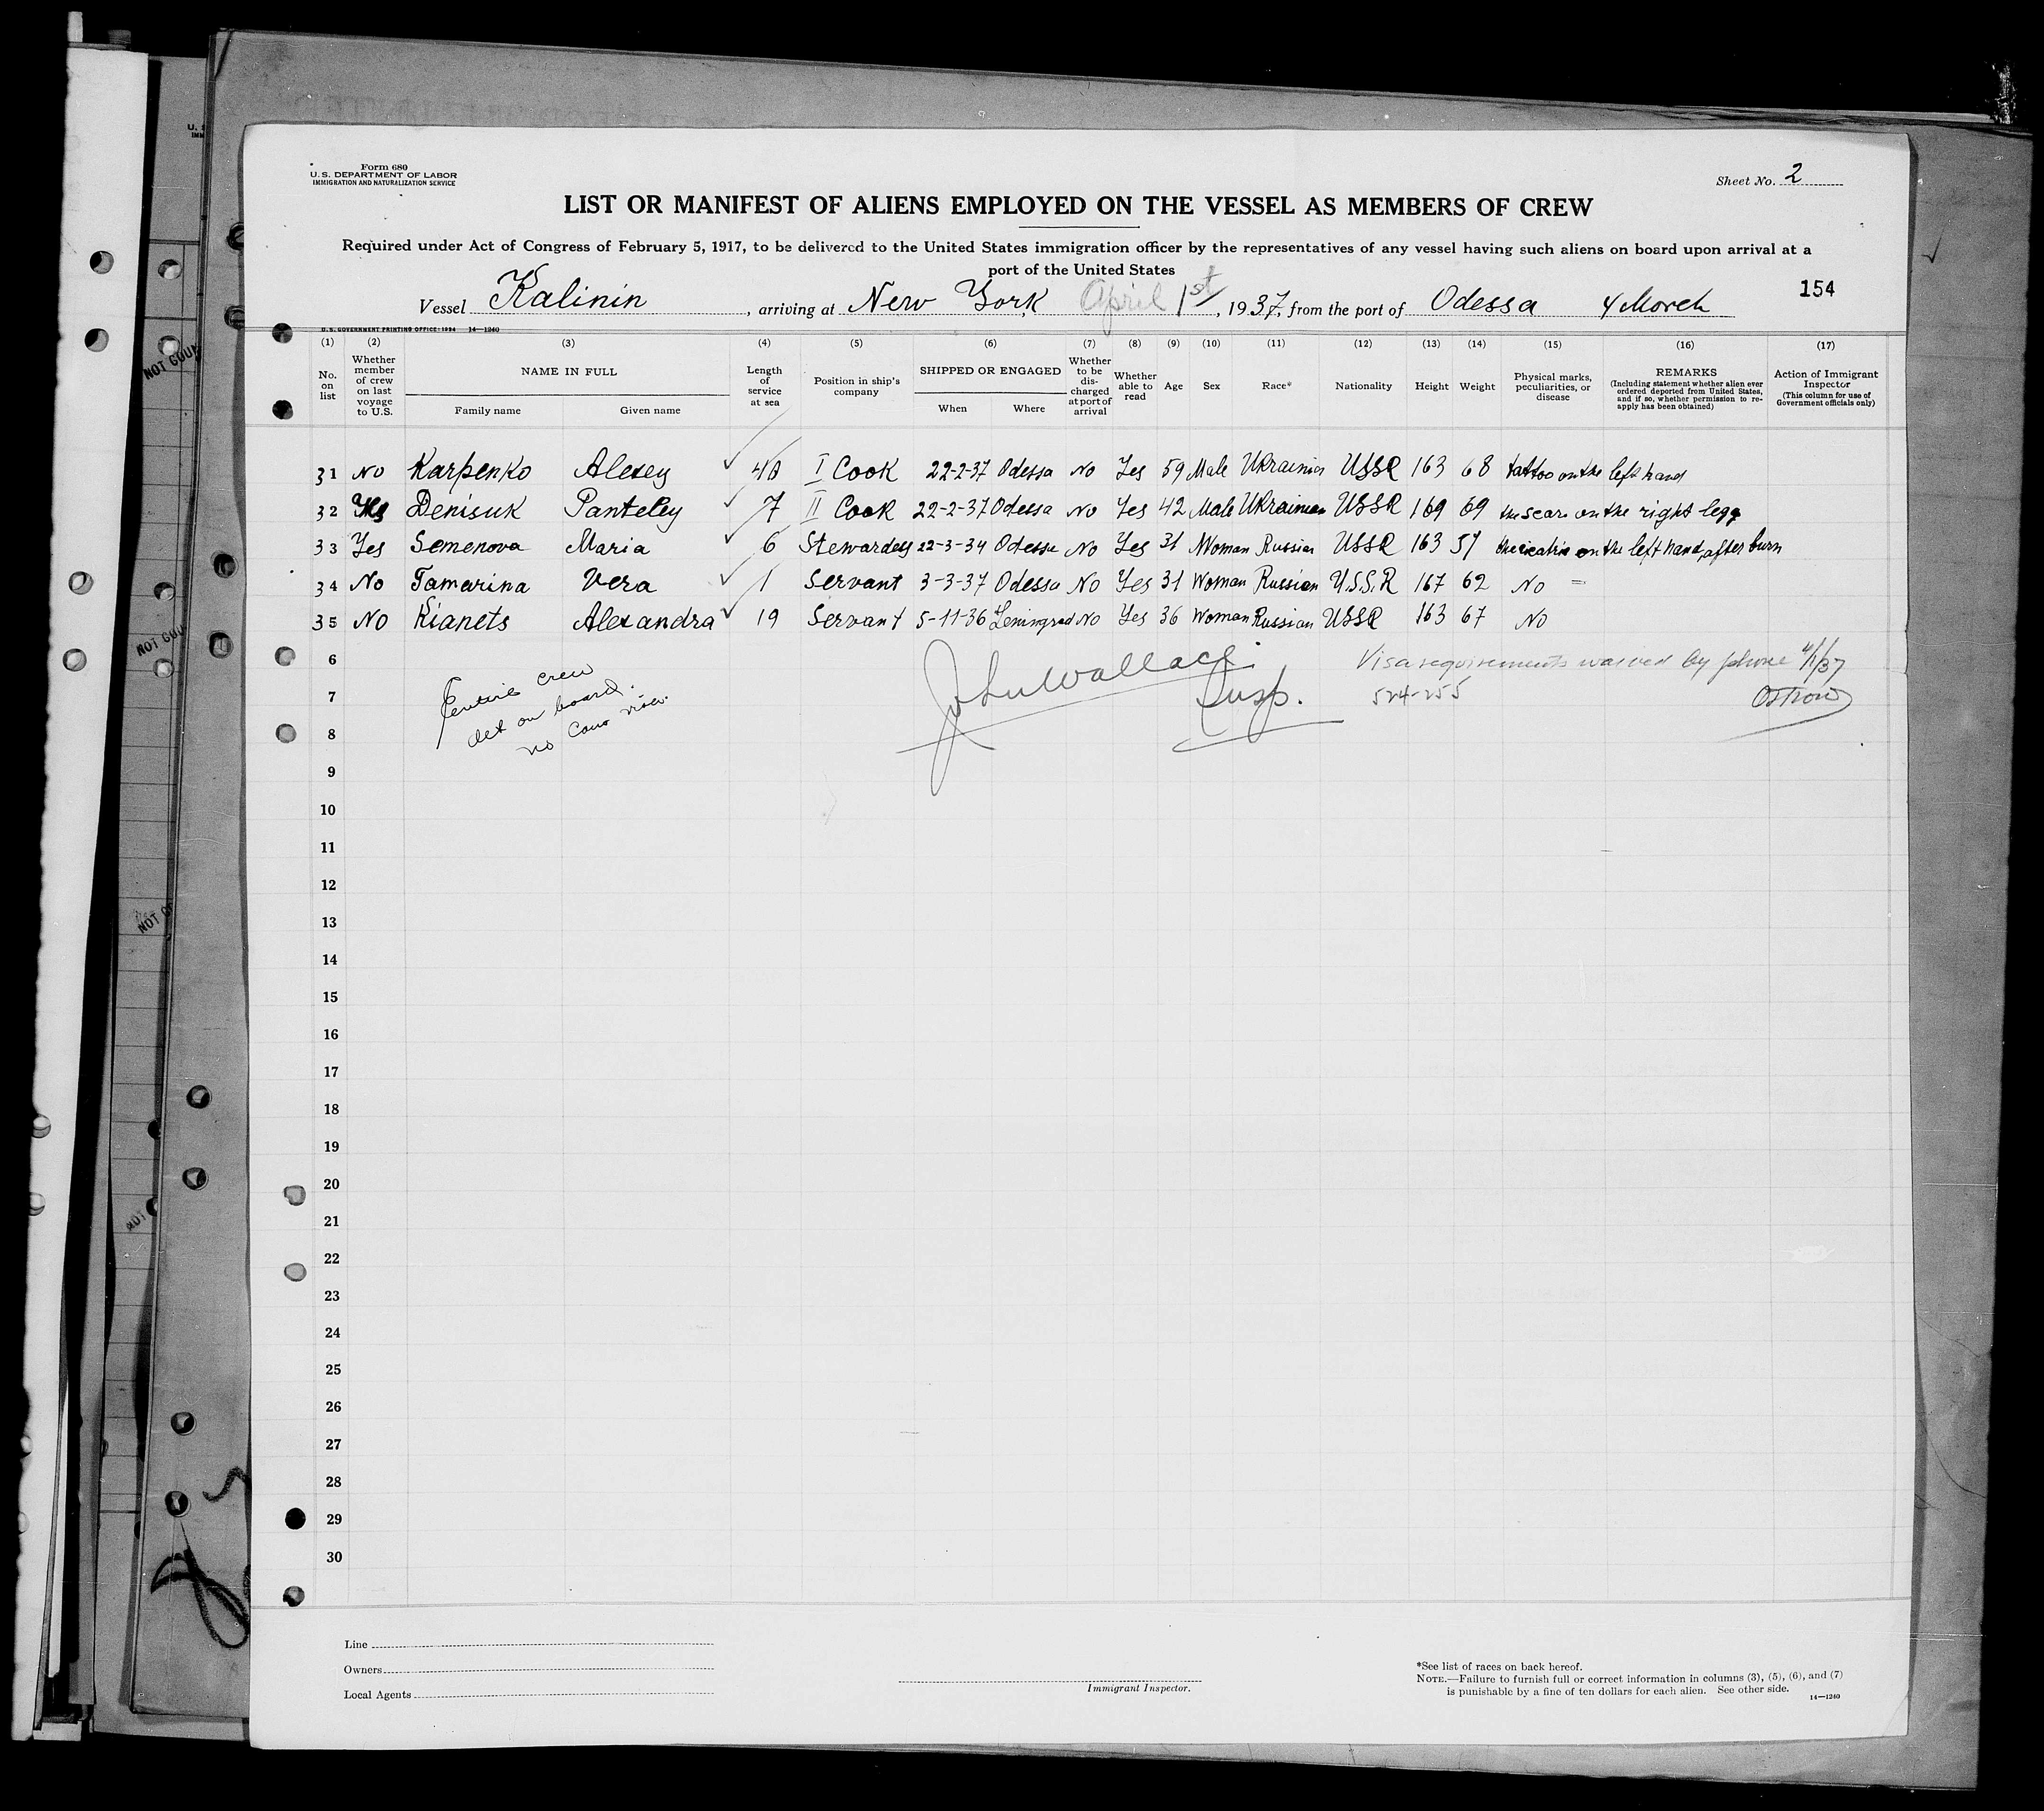 Form 680
U. S. DEPARTMENT OF LABOR
IMMIGRATION AND NATURALIZATION SERVICE
Sheet No. 2
LIST OR MANIFEST OF ALIENS EMPLOYED ON THE VESSEL AS MEMBERS OF CREW
Required under Act of Congress of February 5, 1917, to be delivered to the United States immigration officer by the representatives of any vessel having such aliens on board upon arrival at a
port of the United States
154
Vessel Kalinin, arriving at New York April 1st, 1937, from the port of Odessa 4 March
U. S. GOVERNMENT PRINTING OFFICE: 1934 14—1240
(1) (2) (3) (4) (5) (6) (7) (8) (9) (10) (11) (12) (13) (14) (15) (16) (17)
No. on list
Whether member of crew on last voyage to U.S.
NAME IN FULL
Family name Given name
Length of service at sea
Position in ship's company
SHIPPED OR ENGAGED
When Where
Whether to be discharged at port of arrival
Whether able to read
Age
Sex
Race*
Nationality
Height
Weight
Physical marks, peculiarities, or disease
REMARKS
(Including statement whether alien ever ordered deported from United States, and if so, whether permission to reapply has been obtained)
Action of Immigrant Inspector
(This column for use of Government officials only)
31 No Karpenko Alexey 40 I Cook 22-2-37 Odessa No Yes 59 Male Ukrainian USSR 163 68 tattoo on the left hand
32 Yes Denisuk Panteley 7 II Cook 22-2-37 Odessa No Yes 42 Male Ukrainian USSR 169 69 the scar on the right legg
33 Yes Semenova Maria 6 Stewardess 22-3-34 Odessa No Yes 31 Woman Russian USSR 163 57 the cicatris on the left hand, after burn
34 No Tamarina Vera 1 Servant 3-3-37 Odessa No Yes 31 Woman Russian U.S.S.R 167 62 No
35 No Kianets Alexandra 19 Servant 5-11-36 Leningrad No Yes 36 Woman Russian USSR 163 67 No
6
7
8
Entire crew
det on board.
no Cons visa.
John Wallace
Insp.
Visa requirements waived by phone 4/1/37
524-255
Ostrow
9
10
11
12
13
14
15
16
17
18
19
20
21
22
23
24
25
26
27
28
29
30
Line
Owners
Local Agents
Immigrant Inspector.
*See list of races on back hereof.
NOTE.—Failure to furnish full or correct information in columns (3), (5), (6), and (7)
is punishable by a fine of ten dollars for each alien. See other side.
14—1240